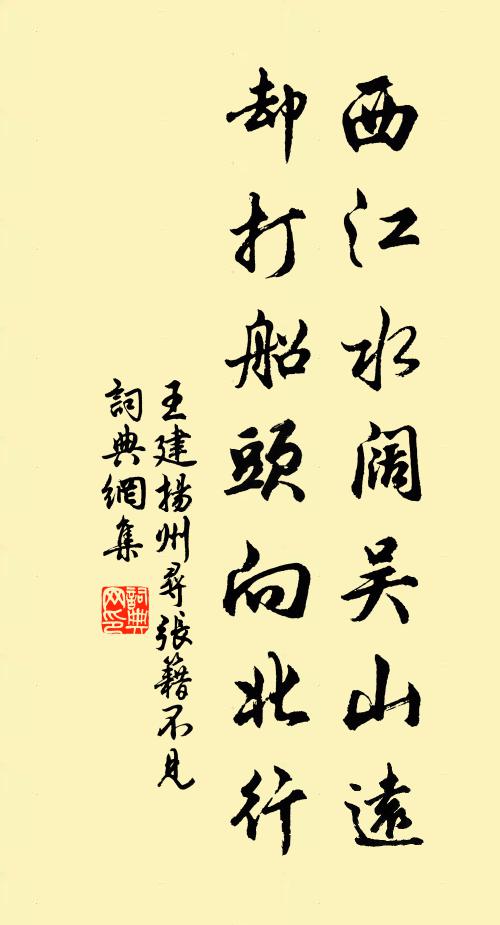 西江水阔吴山遠
却打船頭向北行
王建揚州尋張籍不見
詞典網集
詞典
网印